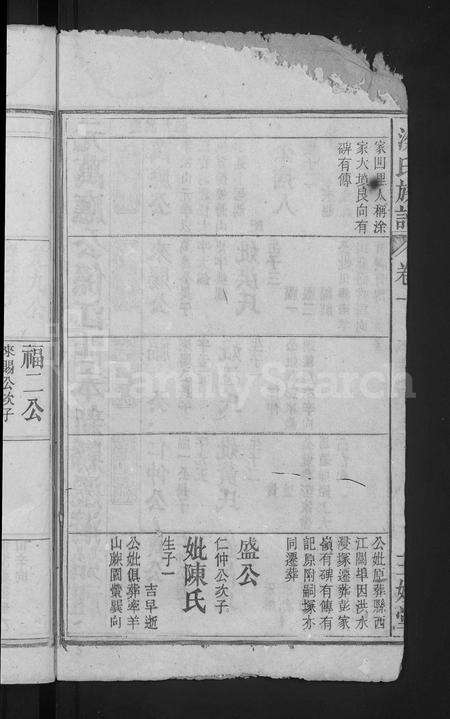 氏族譜
卷一
家凹里人稱涂
家大墳艮向有
碑有傳
公妣原葬縣西
江關埠因洪水
漫塚遷葬彭家
嶺有碑有傳有
記原附嗣塚亦
同遷葬
盛公
仁仲公次子
妣陳氏
生子一
吉早逝
公妣俱葬牽羊
山族園螢巽向
福二公
來賜公次子
FamilySearch